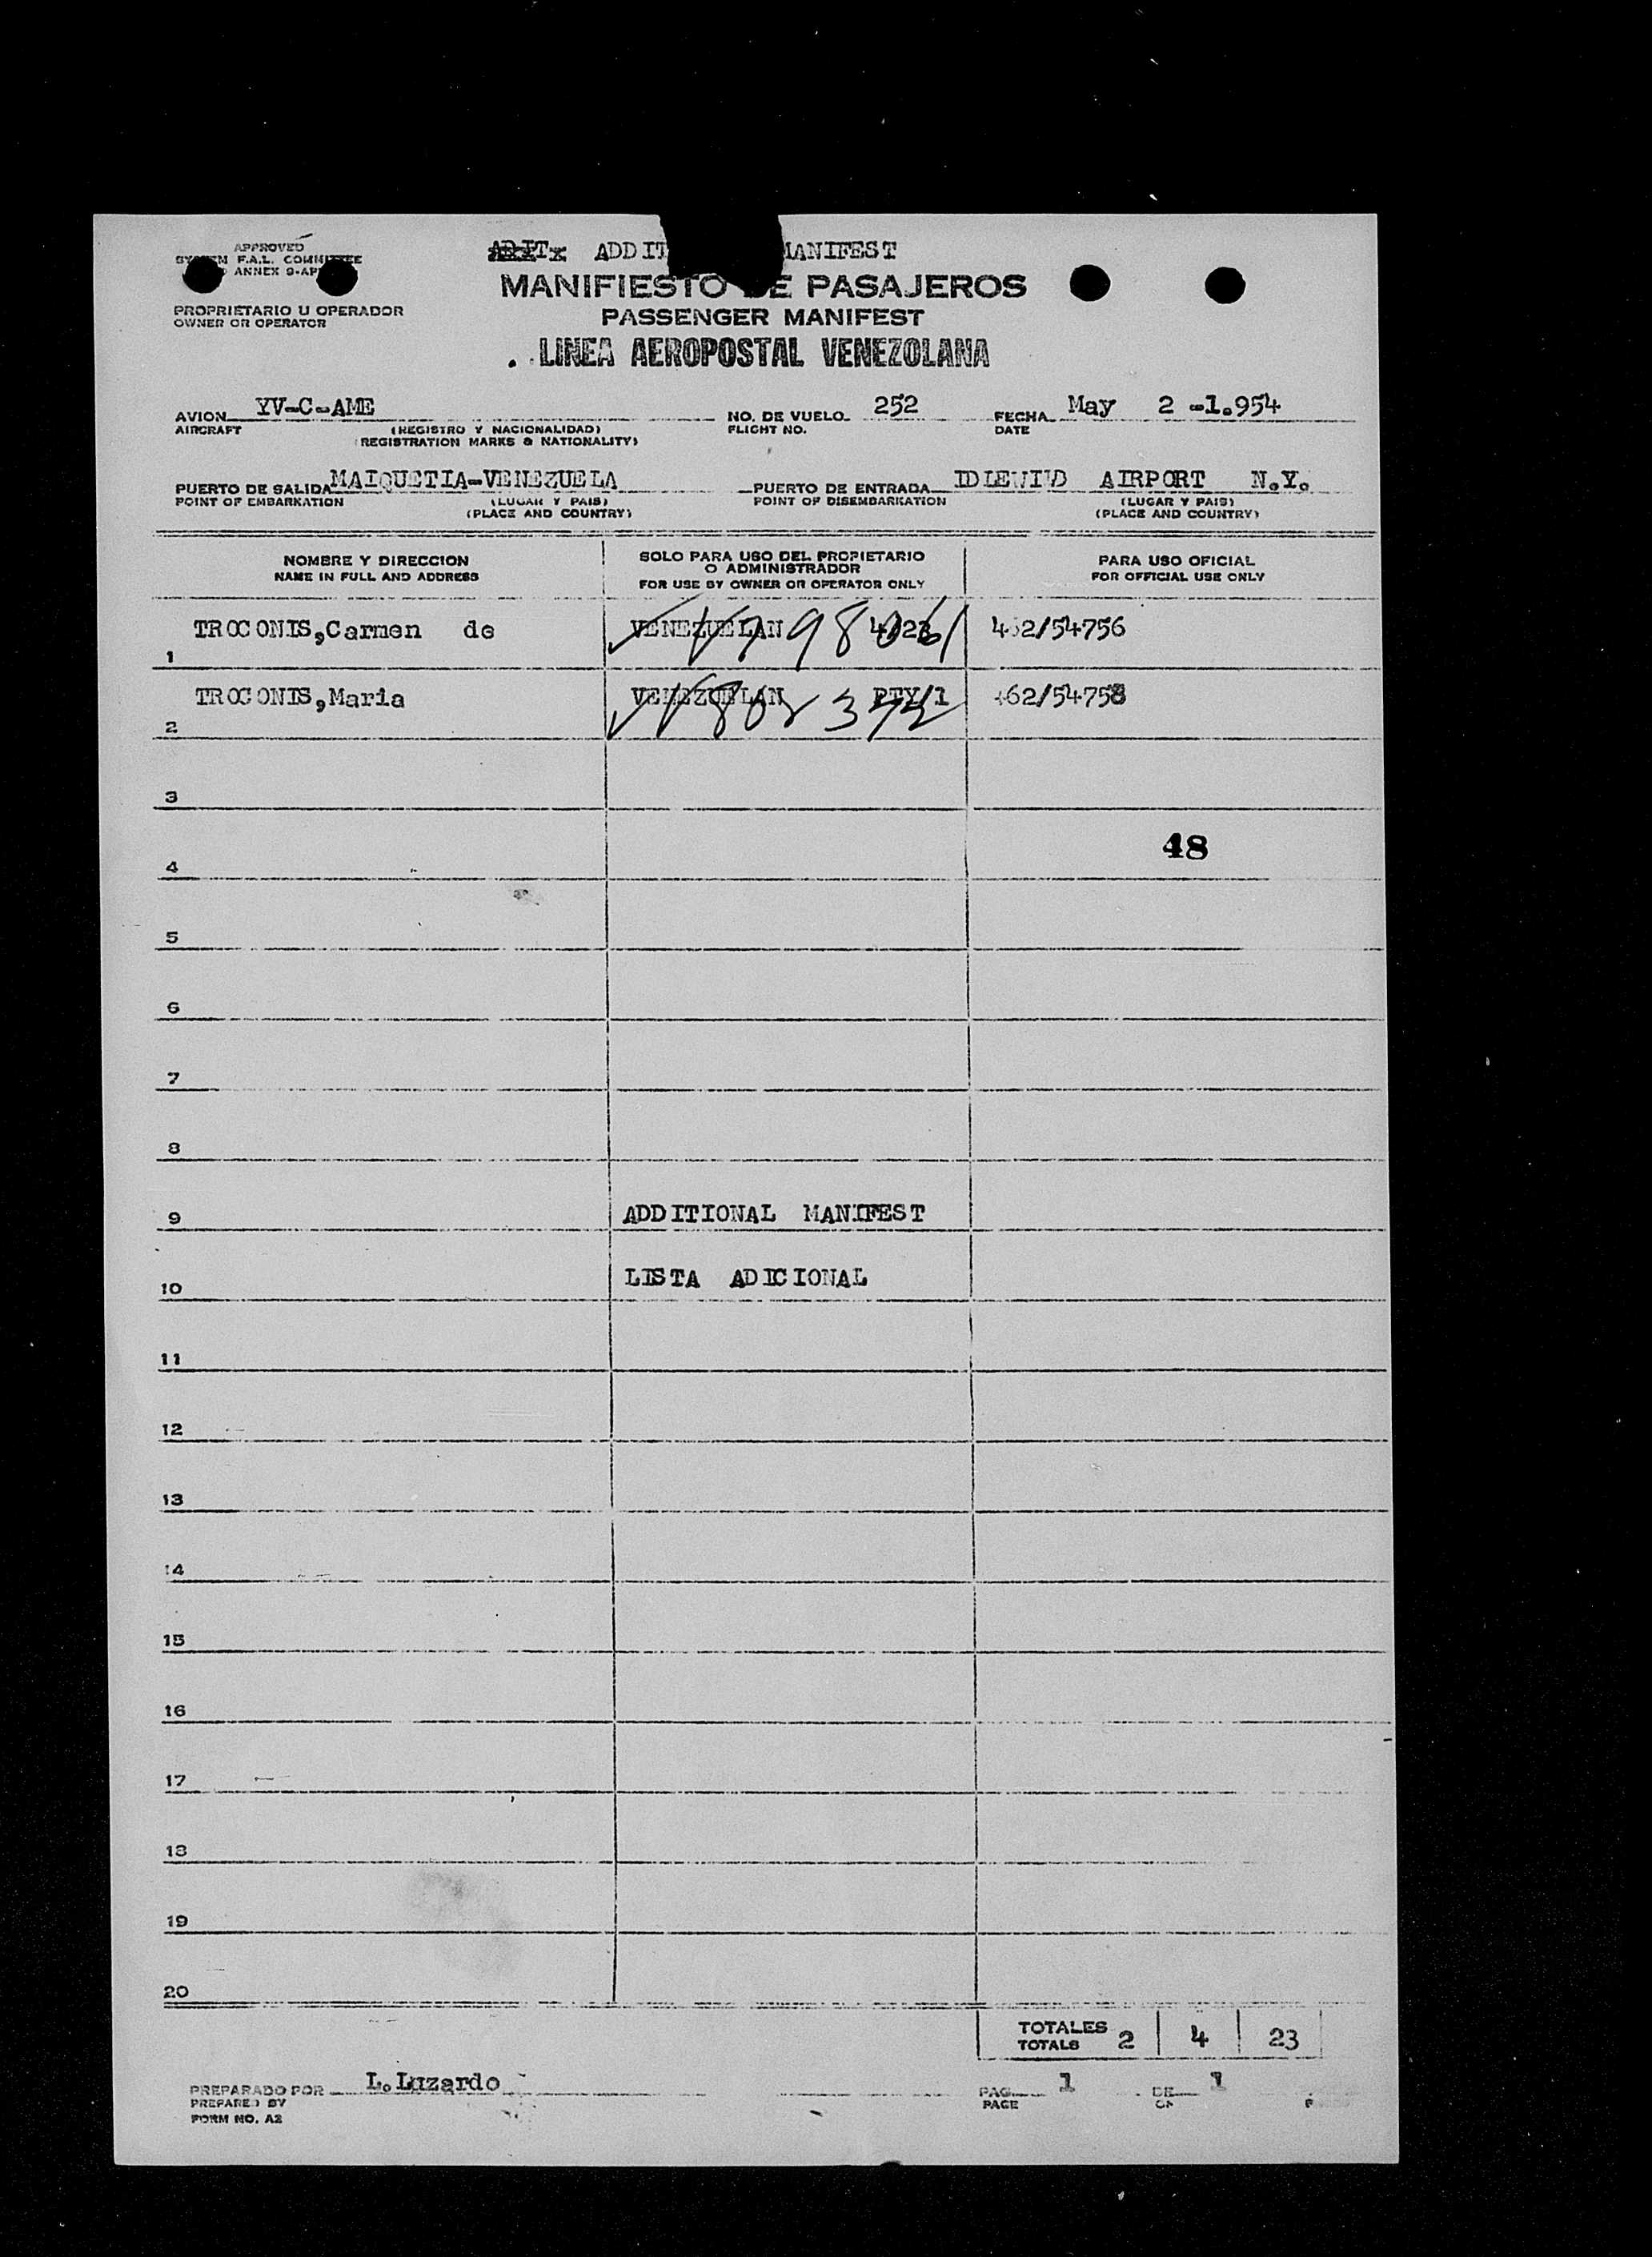 APPROVED
F.A.L. COMMITTEE
ANNEX 9
ADDIT MANIFEST
MANIFIESTO DE PASAJEROS
PASSENGER MANIFEST
PROPRIETARIO U OPERADOR
OWNER OR OPERATOR
LINEA AEROPOSTAL VENEZOLANA
AVION YV-C-AME NO. DE VUELO 252 FECHA May 2 -1.954
AIRCRAFT (REGISTRO Y NACIONALIDAD) FLIGHT NO. DATE
(REGISTRATION MARKS & NATIONALITY)
PUERTO DE SALIDA MAIQUETIA-VENEZUELA PUERTO DE ENTRADA IDLEWILD AIRPORT N.Y.
POINT OF EMBARKATION (LUGAR Y PAIS) POINT OF DISEMBARKATION (LUGAR Y PAIS)
(PLACE AND COUNTRY) (PLACE AND COUNTRY)
NOMBRE Y DIRECCION SOLO PARA USO DEL PROPIETARIO PARA USO OFICIAL
O ADMINISTRADOR
NAME IN FULL AND ADDRESS FOR USE BY OWNER OR OPERATOR ONLY FOR OFFICIAL USE ONLY
1 TROCONIS,Carmen de VENEZUELAN 462/54756
2 TROCONIS,Maria VENEZUELAN PTY/1 462/54758
3
4 48
5
6
7
8
9 ADDITIONAL MANIFEST
10 LISTA ADICIONAL
11
12
13
14
15
16
17
18
19
20
TOTALES
TOTALS 2 4 23
PREPARADO POR L. Luzardo PAG. 1 DE 1
PREPARED BY PAGE OF
FORM NO. A2